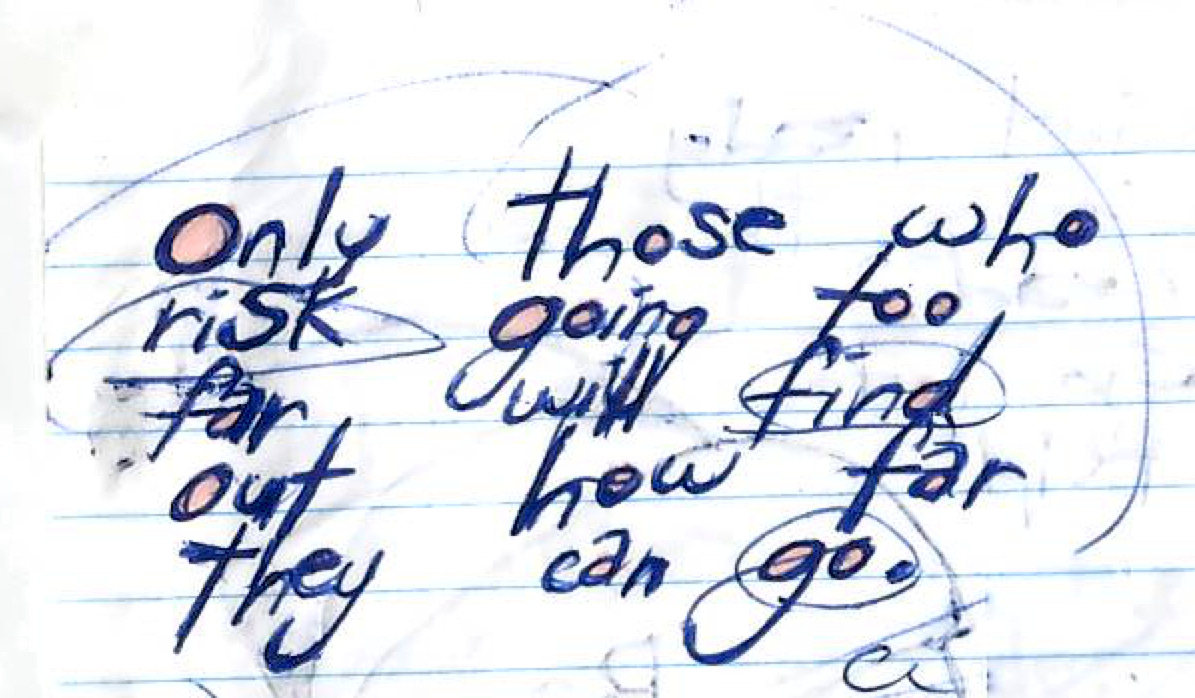 Only those who
risk going too
far will find
out how far
they can go.